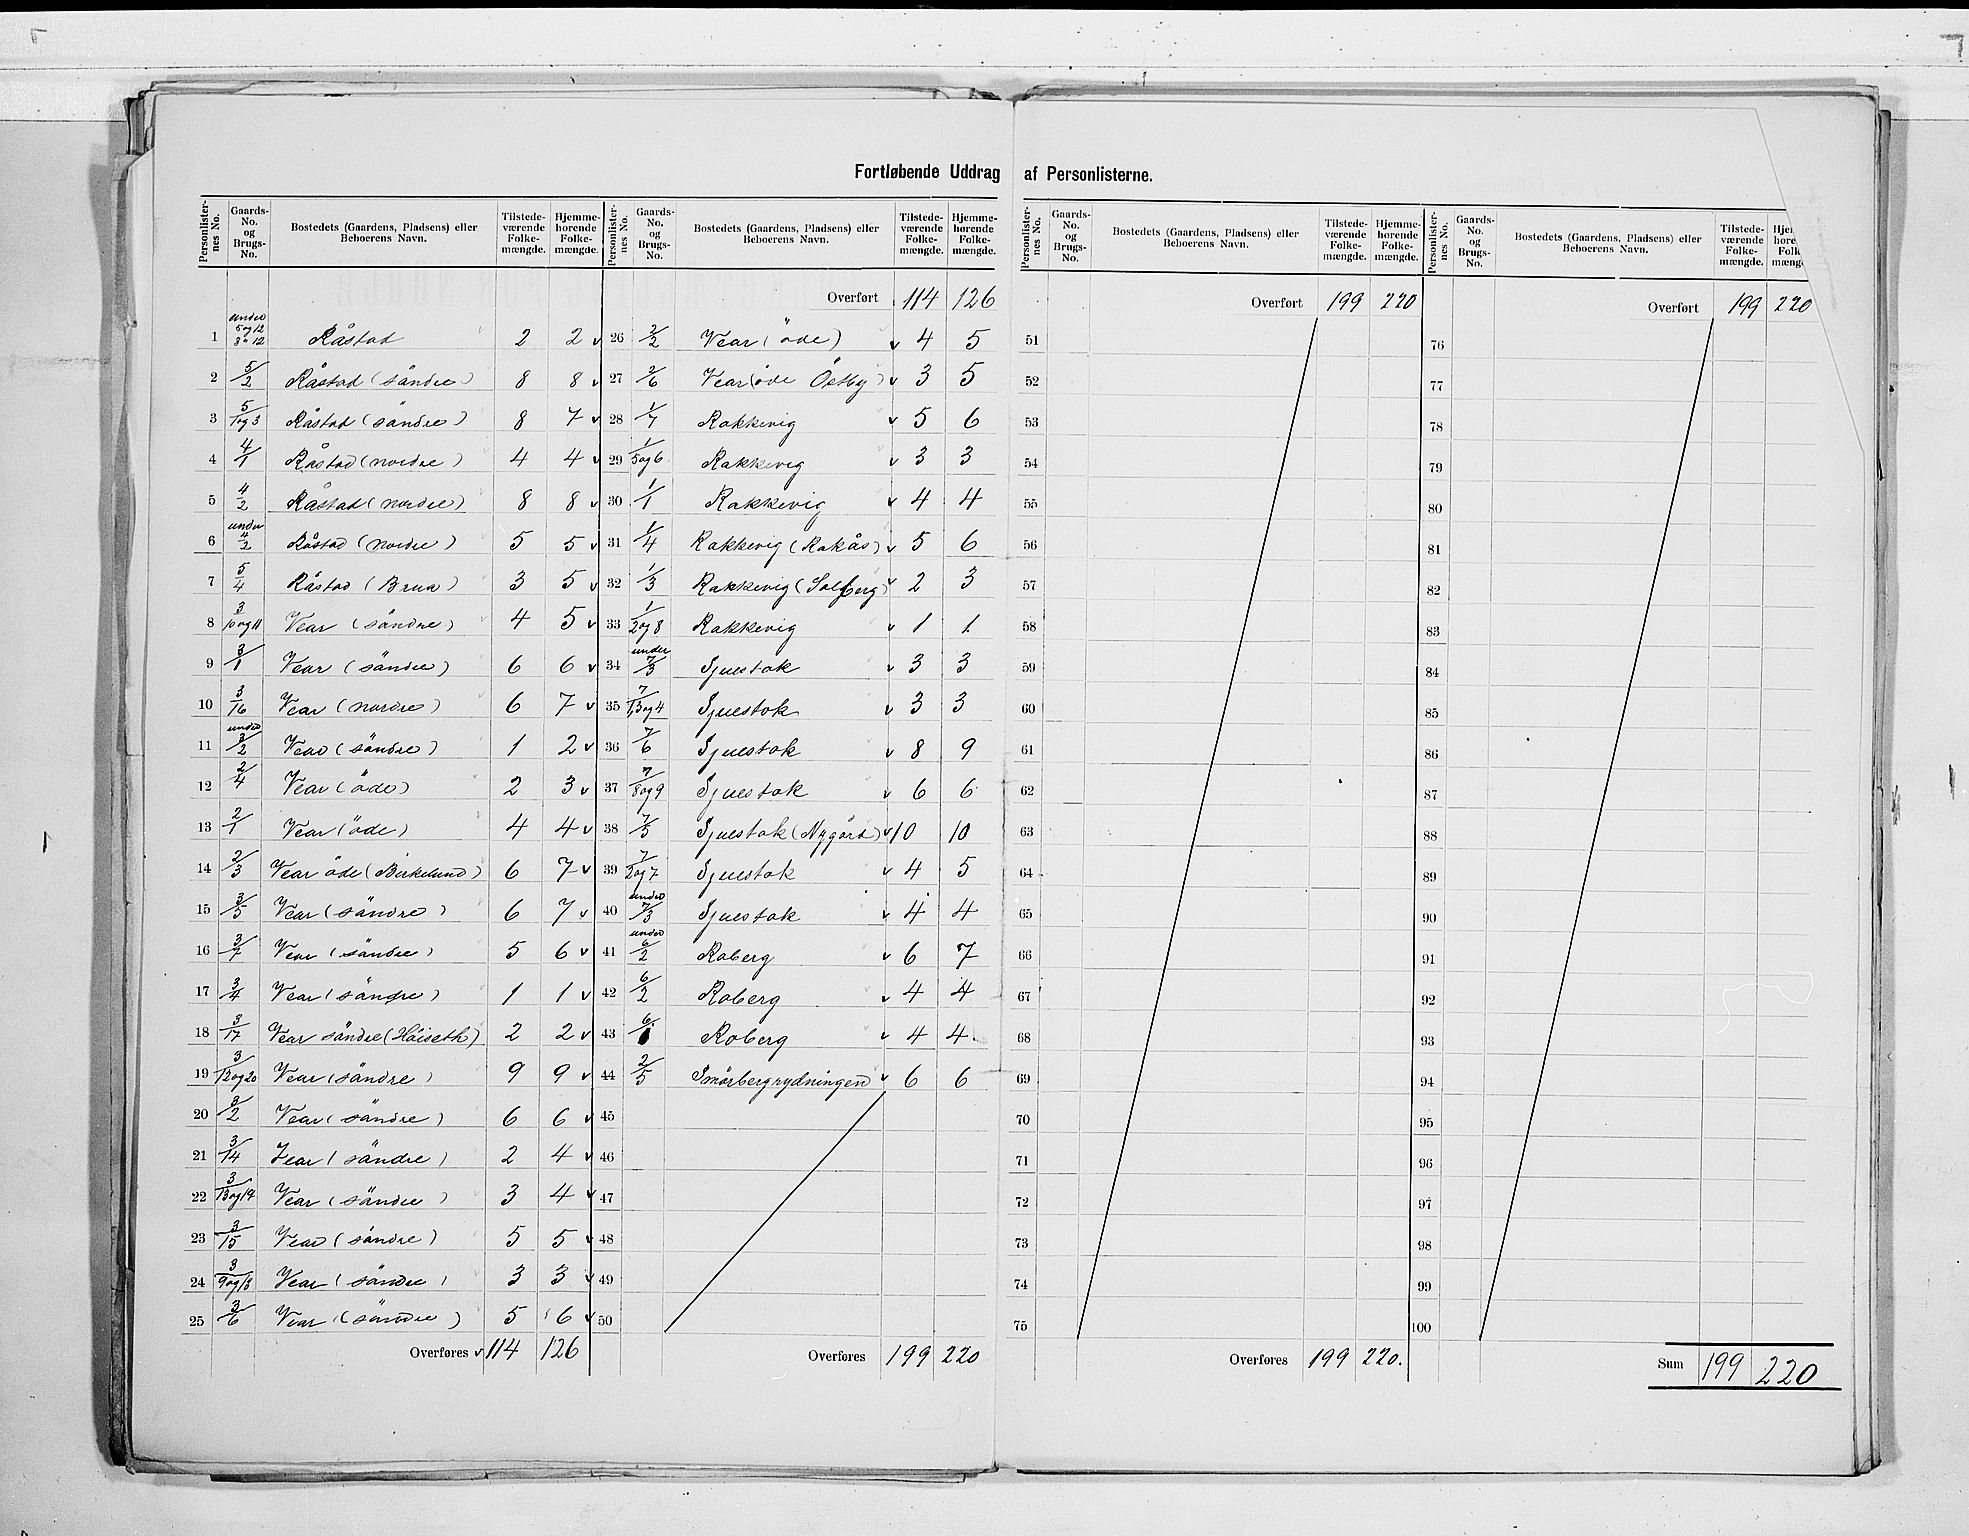 Fortløbende Uddrag af Personlisterne.
Personlister-nes No. Gaards-No. og Brugs-No. Bostedets (Gaardens, Pladsens) eller Beboerens Navn. Tilstede-værende Folke-mængde. Hjemme-hørende Folke-mængde.
1 under 5 og 12 3 " 12 Råstad 2 2 v
2 5/2 Råstad (söndre) 8 8 v
3 5/1 og 3 Råstad (söndre) 8 7 v
4 4/1 Råstad (nordre) 4 4 v
5 4/2 Råstad (nordre) 8 8 v
6 under 4/2 Råstad (nordre) 5 5 v
7 5/4 Råstad (Brua) 3 5 v
8 3/10 og 11 Vear (söndre) 4 5 v
9 3/1 Vear (söndre) 6 6 v
10 3/16 Vear (nordre) 6 7 v
11 under 3/2 Vear (söndre) 1 2 v
12 2/4 Vear (öde) 2 3 v
13 2/1 Vear (öde) 4 4 v
14 2/3 Vear öde (Birkelund) 6 7 v
15 3/5 Vear (söndre) 6 7 v
16 3/7 Vear (söndre) 5 6 v
17 3/4 Vear (söndre) 1 1 v
18 3/17 Vear söndre (Höiseth) 2 2 v
19 3/12 og 20 Vear (söndre) 9 9 v
20 3/2 Vear (söndre) 6 6 v
21 3/14 Vear (söndre) 2 4 v
22 3/13 og 19 Vear (söndre) 3 4 v
23 3/15 Vear (söndre) 5 5 v
24 3/9 og 18 Vear (söndre) 3 3 v
25 3/6 Vear (söndre) 5 6 v
Overføres v 114 126
Personlister-nes No. Gaards-No. og Brugs-No. Bostedets (Gaardens, Pladsens) eller Beboerens Navn. Tilstede-værende Folke-mængde. Hjemme-hørende Folke-mængde.
Overført 114 126
26 2/2 Vear (öde) v 4 5
27 2/6 Vear (öde Östby) v 3 5
28 1/7 Rakkevig v 5 6
29 1/5 og 6 Rakkevig v 3 3
30 1/1 Rakkevig v 4 4
31 1/4 Rakkevig (Rakås) v 5 6
32 1/3 Rakkevig (Solberg) v 2 3
33 1/2 og 8 Rakkevig v 1 1
34 under 7/3 Sjuestok v 3 3
35 7/1, 3 og 4 Sjuestok v 3 3
36 7/6 Sjuestok v 8 9
37 7/8 og 9 Sjuestok v 6 6
38 7/5 Sjuestok (Nygård) v 10 10
39 7/2 og 7 Sjuestok v 4 5
40 under 7/3 Sjuestok v 4 4
41 under 6/2 Roberg v 6 7
42 6/2 Roberg v 4 4
43 6/1 Roberg v 4 4
44 2/5 Smörbergrydningen v 6 6
45
46
47
48
49
50
Overføres 199 220
Personlister-nes No. Gaards-No. og Brugs-No. Bostedets (Gaardens, Pladsens) eller Beboerens Navn. Tilstede-værende Folke-mængde. Hjemme-hørende Folke-mængde.
Overført 199 220
51
52
53
54
55
56
57
58
59
60
61
62
63
64
65
66
67
68
69
70
71
72
73
74
75
Overføres 199 220.
Personlister-nes No. Gaards-No. og Brugs-No. Bostedets (Gaardens, Pladsens) eller Beboerens Navn. Tilstede-værende Folke-mængde.
Overført 199 220
76
77
78
79
80
81
82
83
84
85
86
87
88
89
90
91
92
93
94
95
96
97
98
99
100
Sum 199 220